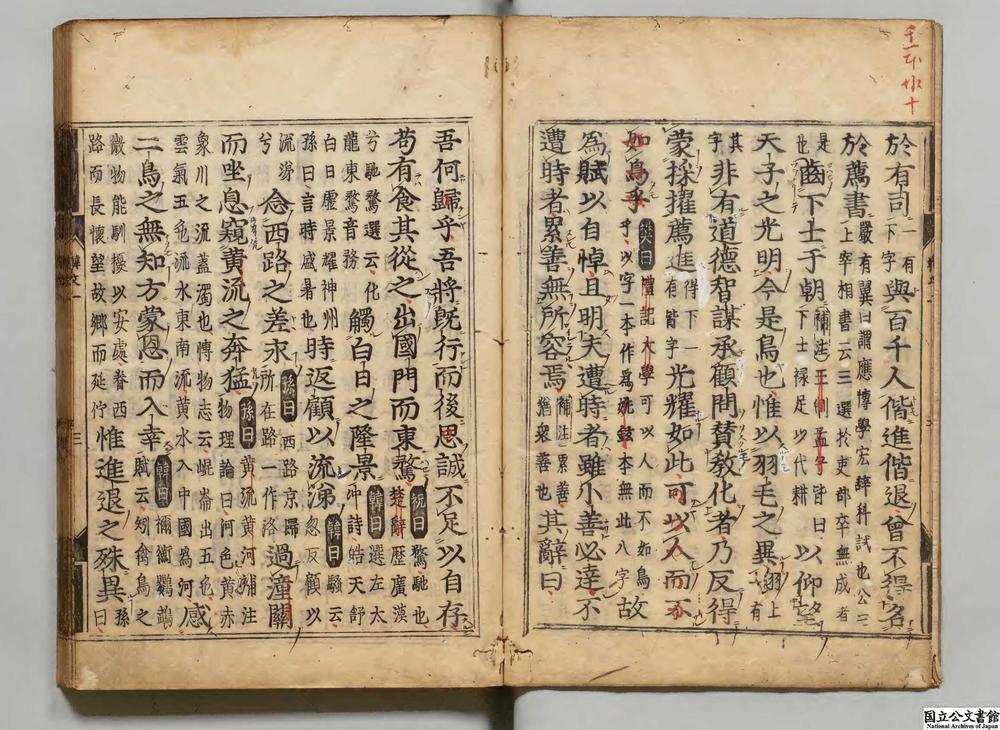 於有司一有下字與百千人偕進偕退曾不得名
於薦書嚴有翼曰謂應博學宏辭科試也公三上宰相書云三選於吏部卒無成者
是也齒下士于朝補注王制孟子皆曰下士祿足以代耕以仰望
天子之光明今是鳥也惟以羽毛之異羽上有
其字非有道德智謀承顧問贊敎化者乃反得
蒙採擢薦進得下一有皆字光耀如此可以人而不
如鳥乎樊曰禮記大學可以人而不如鳥乎以字一本作爲鉉本無此八字故
爲賦以自悼且明夫遭時者雖小善必達不
遭時者累善無所容焉補注累善猶衆善也其辭曰
吾何歸乎吾將旣行而後思誠不足以自存
苟有食其從之出國門而東騖祝曰騖馳也楚辭歷廣漠
兮馳騖選云化龍東騖音務觸白日之隆景韓曰選左太冲詩皓天舒
白日靈景耀神州孫曰言時盛暑也時返顧以流涕韓曰騷云忽反顧以
流涕兮念西路之羌永孫曰西路京師所在路一作洛過潼關
而坐息窺黃流之奔猛孫曰黃流黃河補注物理論曰河色黃赤
衆川之流蓋濁也博物志云崐崙出五色雲氣五色流水東南流黃水入中國爲河感
二鳥之無知方蒙恩而入幸韓曰禰衡鸚鵡賦云矧禽鳥之
微物能馴擾以安處眷西路而長懷望故鄉而延佇惟進退之殊異孫曰
三
国立公文書館
National Archives of Japan